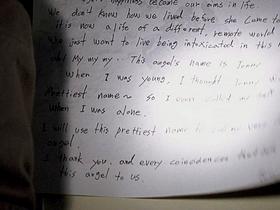 happiness became our aims in life.
We don't know how we lived before she came
It is now a life of a different, remote world
We just want to live being intoxicated in this
oh! My my my... This angel's name is Jenny
when I was young, I thought Jenny was
Prettiest name~ so I even called
when I was alone.
I will use this prettiest name to call
angel.
I thank you, and every coincidence
this angel to us.